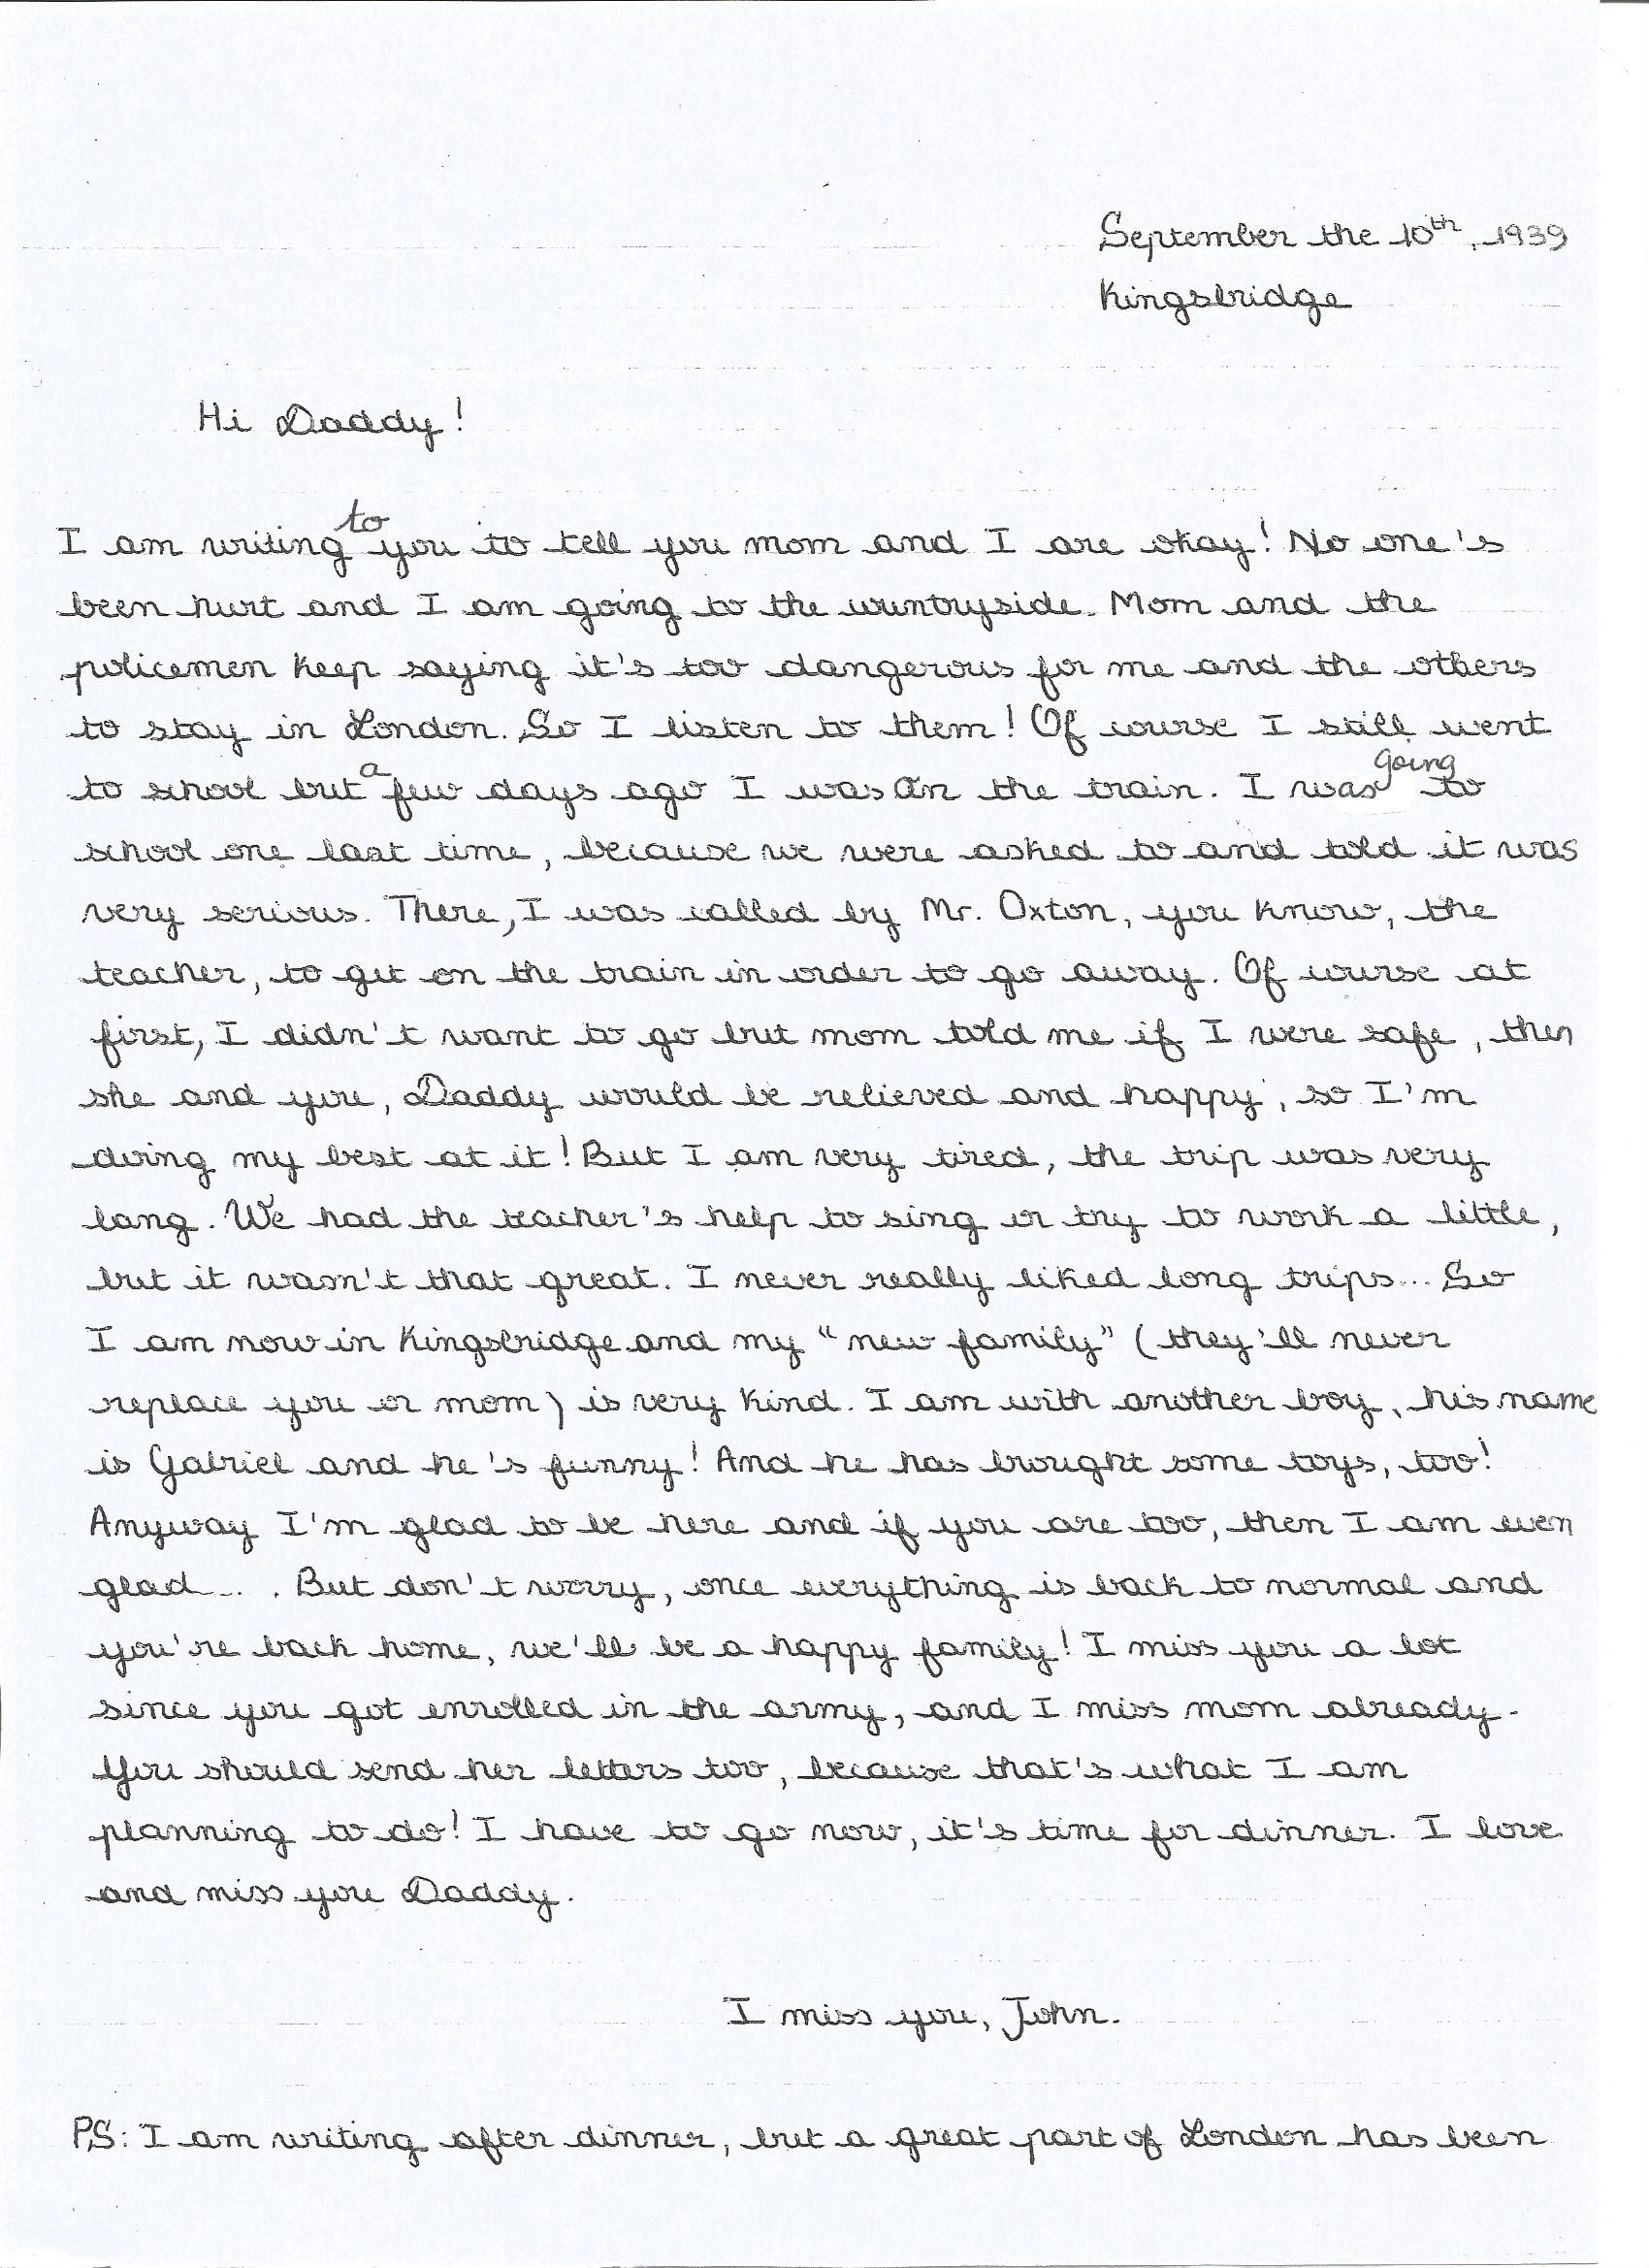 September the 10th, 1939
Kingsbridge
Hi Daddy!
I am writing to you to tell you mom and I are okay! No one's
been hurt and I am going to the countryside. Mom and the
policemen keep saying it's too dangerous for me and the others
to stay in London. So I listen to them! Of course I still went
to school but a few days ago I was on the train. I was going to
school one last time, because we were asked to and told it was
very serious. There, I was called by Mr. Oxton, you know, the
teacher, to get on the train in order to go away. Of course at
first, I didn't want to go but mom told me if I were safe, then
she and you, Daddy would be relieved and happy, so I'm
doing my best at it! But I am very tired, the trip was very
long. We had the teacher's help to sing or try to work a little,
but it wasn't that great. I never really liked long trips... So
I am now in Kingsbridge and my "new family" (they'll never
replace you or mom) is very kind. I am with another boy, his name
is Gabriel and he's funny! And he has brought some toys, too!
Anyway I'm glad to be here and if you are too, then I am even
glad... But don't worry, once everything is back to normal and
you're back home, we'll be a happy family! I miss you a lot
since you got enrolled in the army, and I miss mom already.
You should send her letters too, because that's what I am
planning to do! I have to go now, it's time for dinner. I love
and miss you Daddy.
I miss you, John.
PS: I am writing after dinner, but a great part of London has been